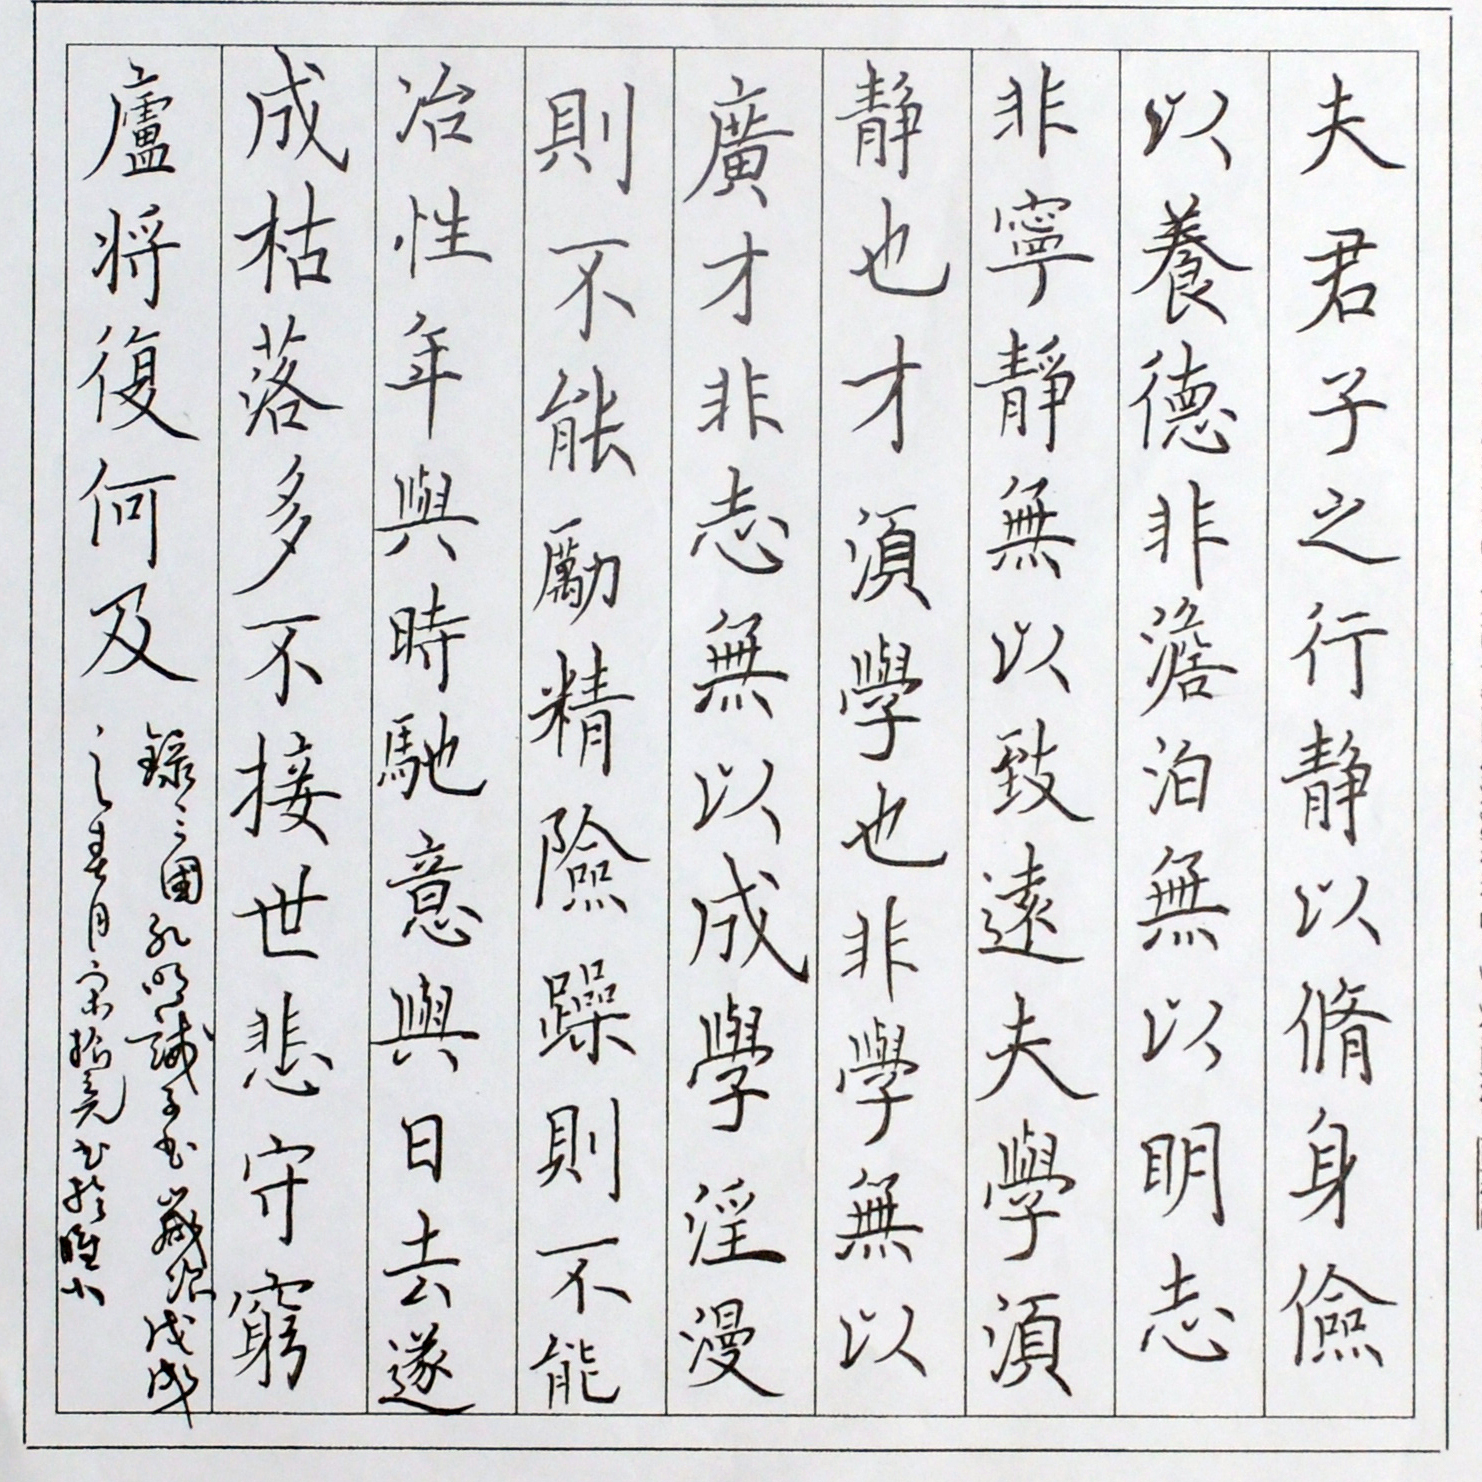 夫君子之行静以脩身儉
以養德非澹泊無以明志
非寧靜無以致遠夫學須
静也才須學也非學無以
廣才非志無以成學淫漫
則不能勵精險躁則不能
冶性年與時馳意與日去遂
成枯落多不接世悲守窮
廬将復何及
錄三國孔明誡子书歲次戊戌
之春月宋